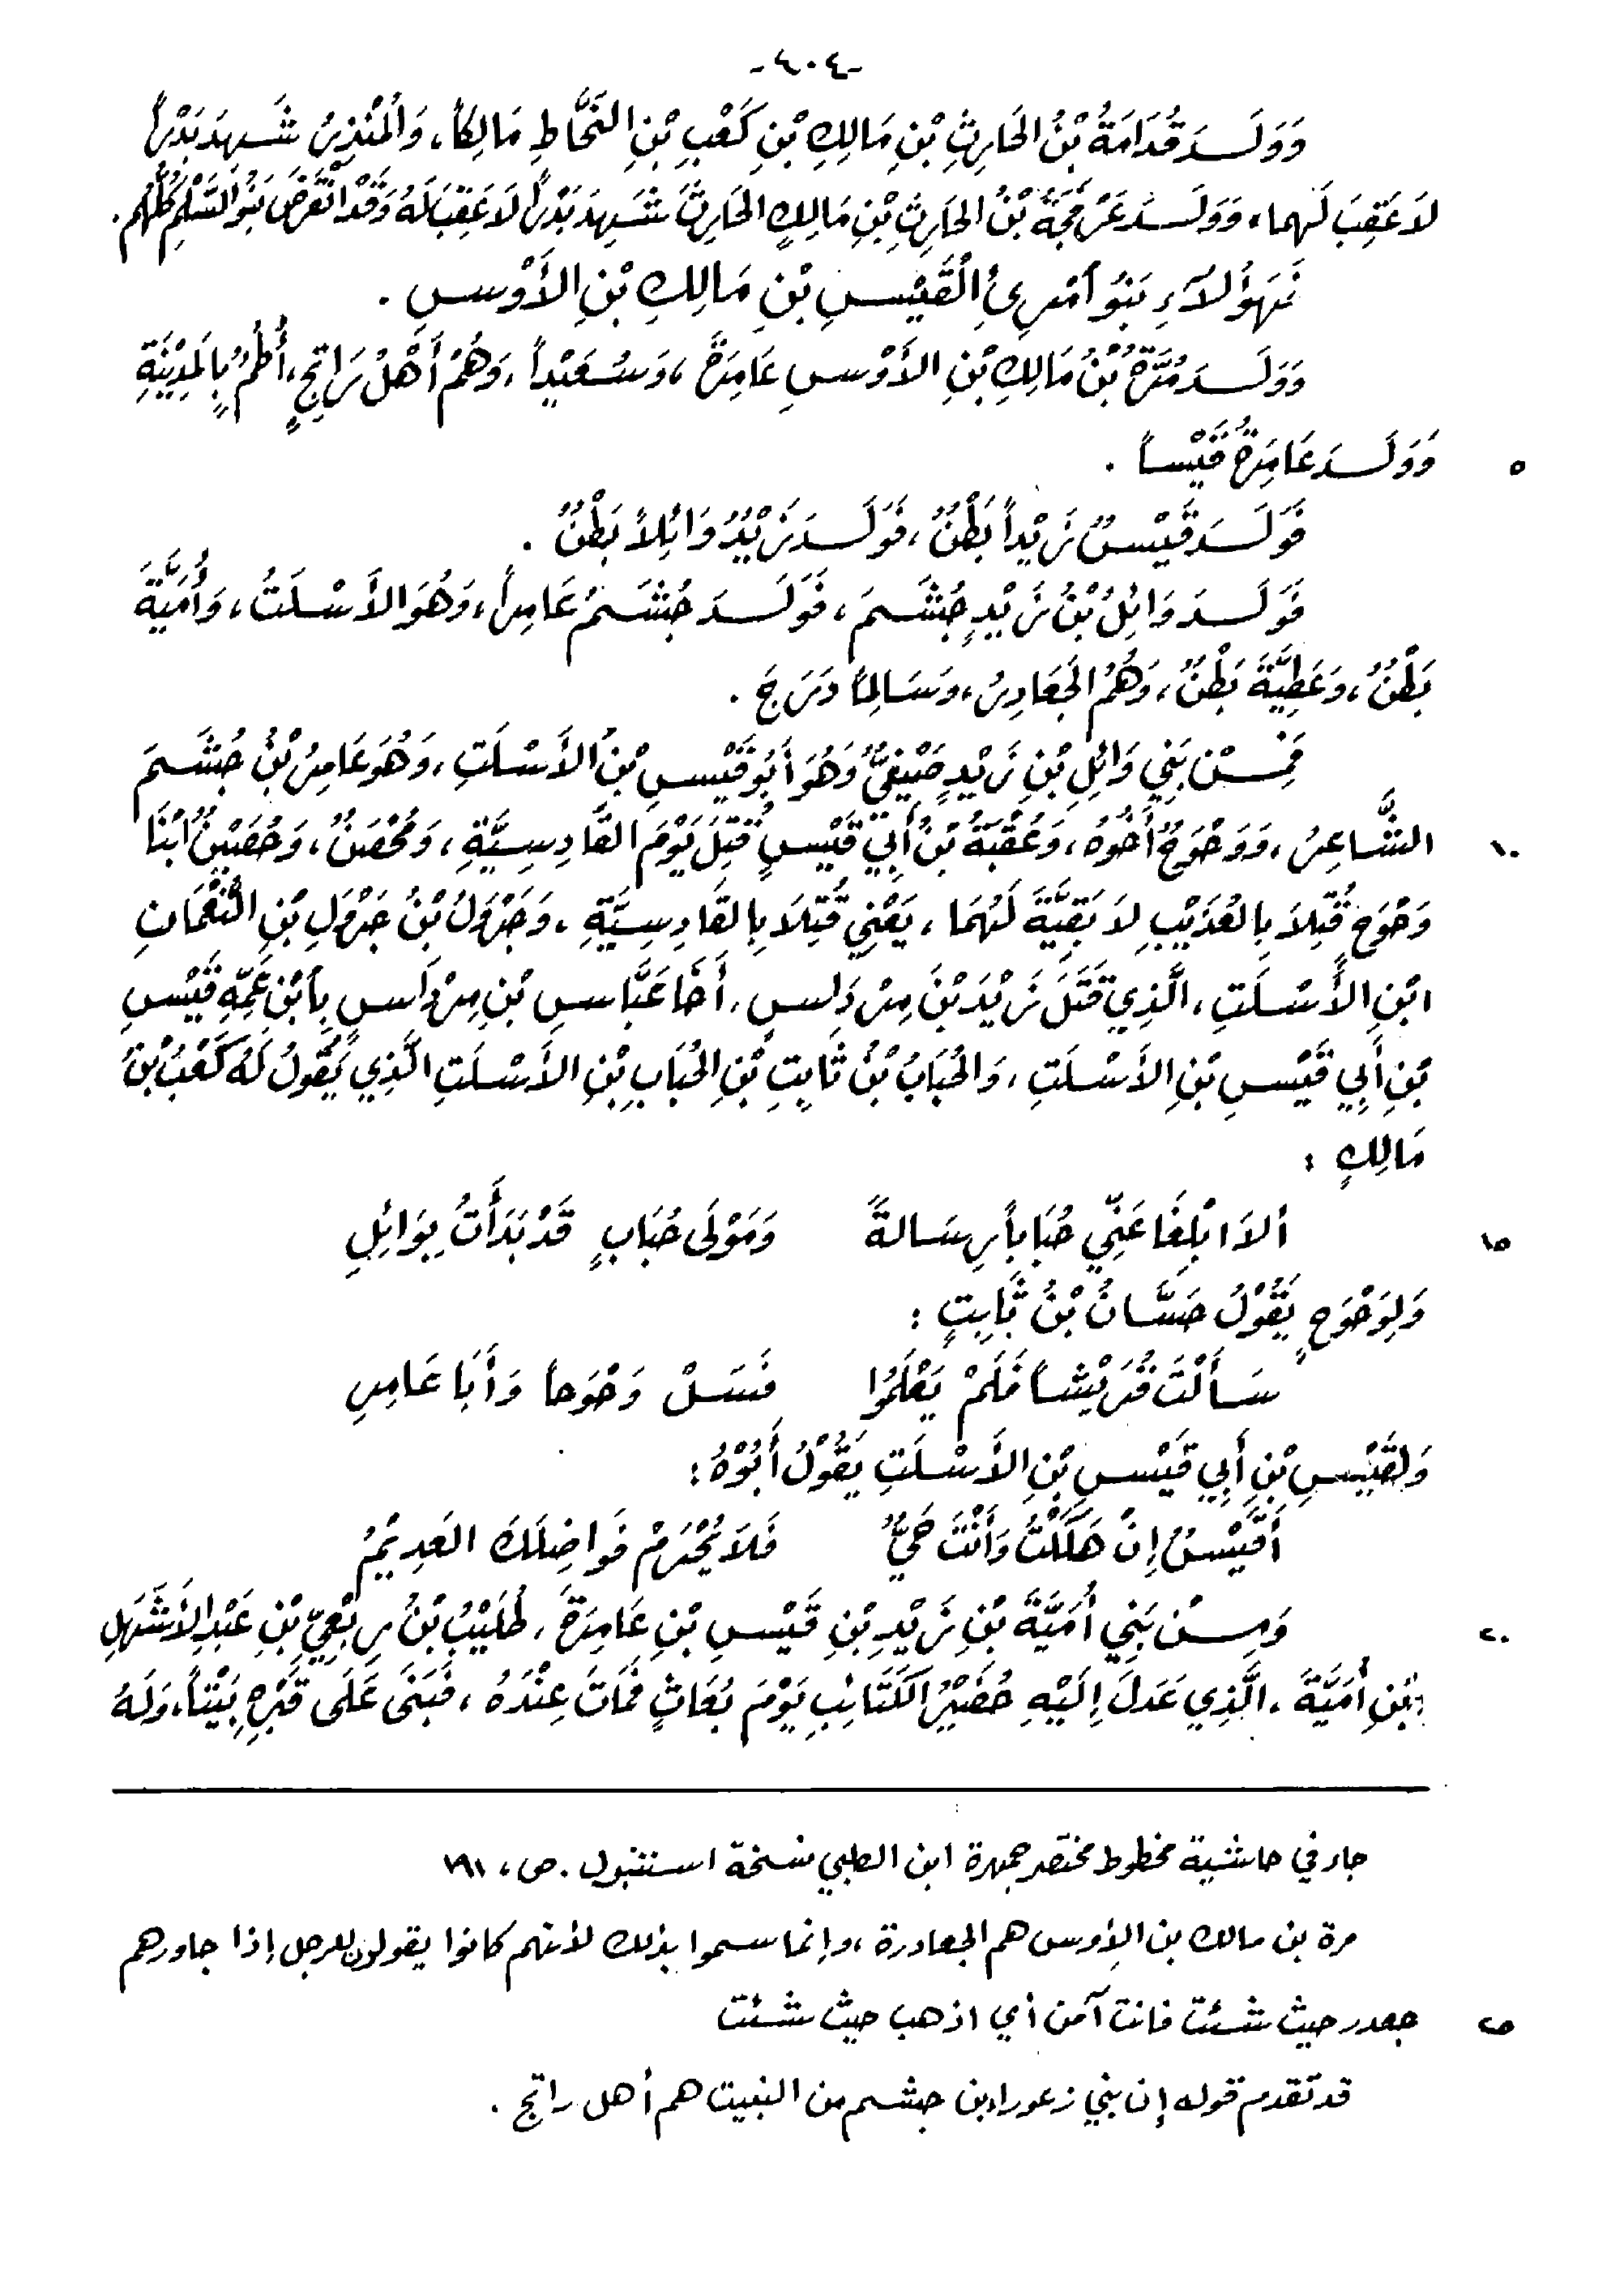 -٤٠٤-
وَوَلَدَ قُدَامَةُ بْنُ الحَارِثِ بْنِ مَالِكِ بْنِ كَعْبِ بْنِ النَّحَّاطِ مَالِكاً، وَالمُنْذِرَ شَهِدَ بَدْراً
لاَ عَقِبَ لَهما، وَوَلَدَ عَرْفَجَةُ بْنُ الحَارِثِ بْنِ مَالِكٍ الحَارِثَ شَهِدَ بَدْراً لاَ عَقِبَ لَهُ وَقَدْ انْقَرَضَ بَنُو السَّلْمِ كُلُّهُم.
فَهَؤُلاَءِ بَنُو أمْرِئِ القَيْسِ بْنِ مَالِكِ بْنِ الأَوْسِ .
وَوَلَدَ مُرَّةُ بْنُ مَالِكِ بْنِ الأَوْسِ عَامِرَةَ، وَسُعَيْداً، وَهُمْ أَهْلُ رَاتِجٍ، أُطُمٌ بِالمَدِيْنَةِ
٥ وَوَلَدَ عَامِرَةُ قَيْساً .
فَوَلَدَ قَيْسٌ زَيْداً بَطْنٌ، فَوَلَدَ زَيْدٌ وَائِلاً بَطْنٌ .
فَوَلَدَ وَائِلُ بْنُ زَيْدٍ جُشَمَ، فَوَلَدَ جُشَمُ عَامِراً، وَهُوَ الأَسْلَتُ، وَأُمَيَّةَ
بَطْنٌ، وَعَطِيَّةَ بَطْنٌ، وَهُمُ الجَعَادِرُ، وَسَالِماً دَرَجَ .
فَمِنْ بَنِي وَائِلِ بْنِ زَيْدٍ صَيْفِيٌّ وَهُوَ أَبُو قَيْسِ بْنُ الأَسْلَتِ، وَهُوَ عَامِرُ بْنُ جُشَمَ
١٠ الشَّاعِرُ، وَوَحْوَحٌ أَخُوهُ، وَعُقْبَةُ بْنُ أَبِي قَيْسٍ قُتِلَ يَوْمَ القَادِسِيَّةِ، وَمُحْصَنٌ، وَحُصَيْنٌ ابْنَا
وَحْوَحٍ قُتِلاَ بِالعُذَيْبِ لاَ بَقِيَّةَ لَهُمَا، يَعْنِي قُتِلاَ بِالقَادِسِيَّةِ، وَجَرْوَلُ بْنُ جَرْوَلِ بْنِ النُّعْمَانِ
ابْنِ الأَسْلَتِ، الَّذِي قَتَلَ زَيْدَ بْنَ مِرْدَاسٍ، أَخَا عَبَّاسِ بْنِ مِرْدَاسٍ بِأبْنِ عَمِّهِ قَيْسِ
بْنِ أَبِي قَيْسِ بْنِ الأَسْلَتِ، وَالحُبَابُ بْنُ ثَابِتِ بْنِ الحُبَابِ بْنِ الأَسْلَتِ الَّذِي يَقُولُ لَهُ كَعْبُ بْنُ
مَالِكٍ :
١٥ ألاَ ابْلِغَا عَنِّي حُبَاباً رِسَالةً وَمَوْلَى حُبَابٍ قَدْ بَدَأْتُ بِوَائِلِ
وَلِوَحْوَحٍ يَقُوْلُ حَسَّانُ بْنُ ثَابِتٍ :
سَأَلْتَ قُرَيْشاً فَلَمْ يَعْلَمُوا فَسَلْ وَحْوَحاً وَأَبَا عَامِرِ
وَلِقَيْسِ بْنِ أَبِي قَيْسِ بْنِ الأَسْلَتِ يَقُوْلُ أَبُوْهُ:
أَقَيْسُ إِنْ هَلَكْتُ وَأَنْتَ حَيٌّ فَلاَ يُحْرَمْ فَوَاضِلَكَ العَدِيْمُ
٢٠ وَمِنْ بَنِي أُمَيَّةَ بْنِ زَيْدِ بْنِ قَيْسِ بْنِ عَامِرَةَ، طُلَيْبُ بْنُ رِبْعِيِّ بْنِ عَبْدِ الأَشْهَلِ
بْنِ أُمَيَّةَ، الَّذِي عَدَلَ إِلَيْهِ حُضَيْرُ الكَتَائِبِ يَوْمَ بُعَاثٍ فَمَاتَ عِنْدَهُ، فَبَنَى عَلَى قَبْرِهِ بَيْتاً، وَلَهُ
جاء في حاشية مخطوط مختصر جمهرة ابن الكلبي نسخة استنبول . ص، ١٩١
مرة بن مالك بن الأوس هم الجعادرة، وإنما سموا بذلك لأنهم كانوا يقولون للرجل إذا جاورهم
٢٥ جعدر حيث شئت فانت آمن أي اذهب حيث شئت
قد تقدم قوله إن بني زعوراء بن جشم من النبيت هم أهل راتج .